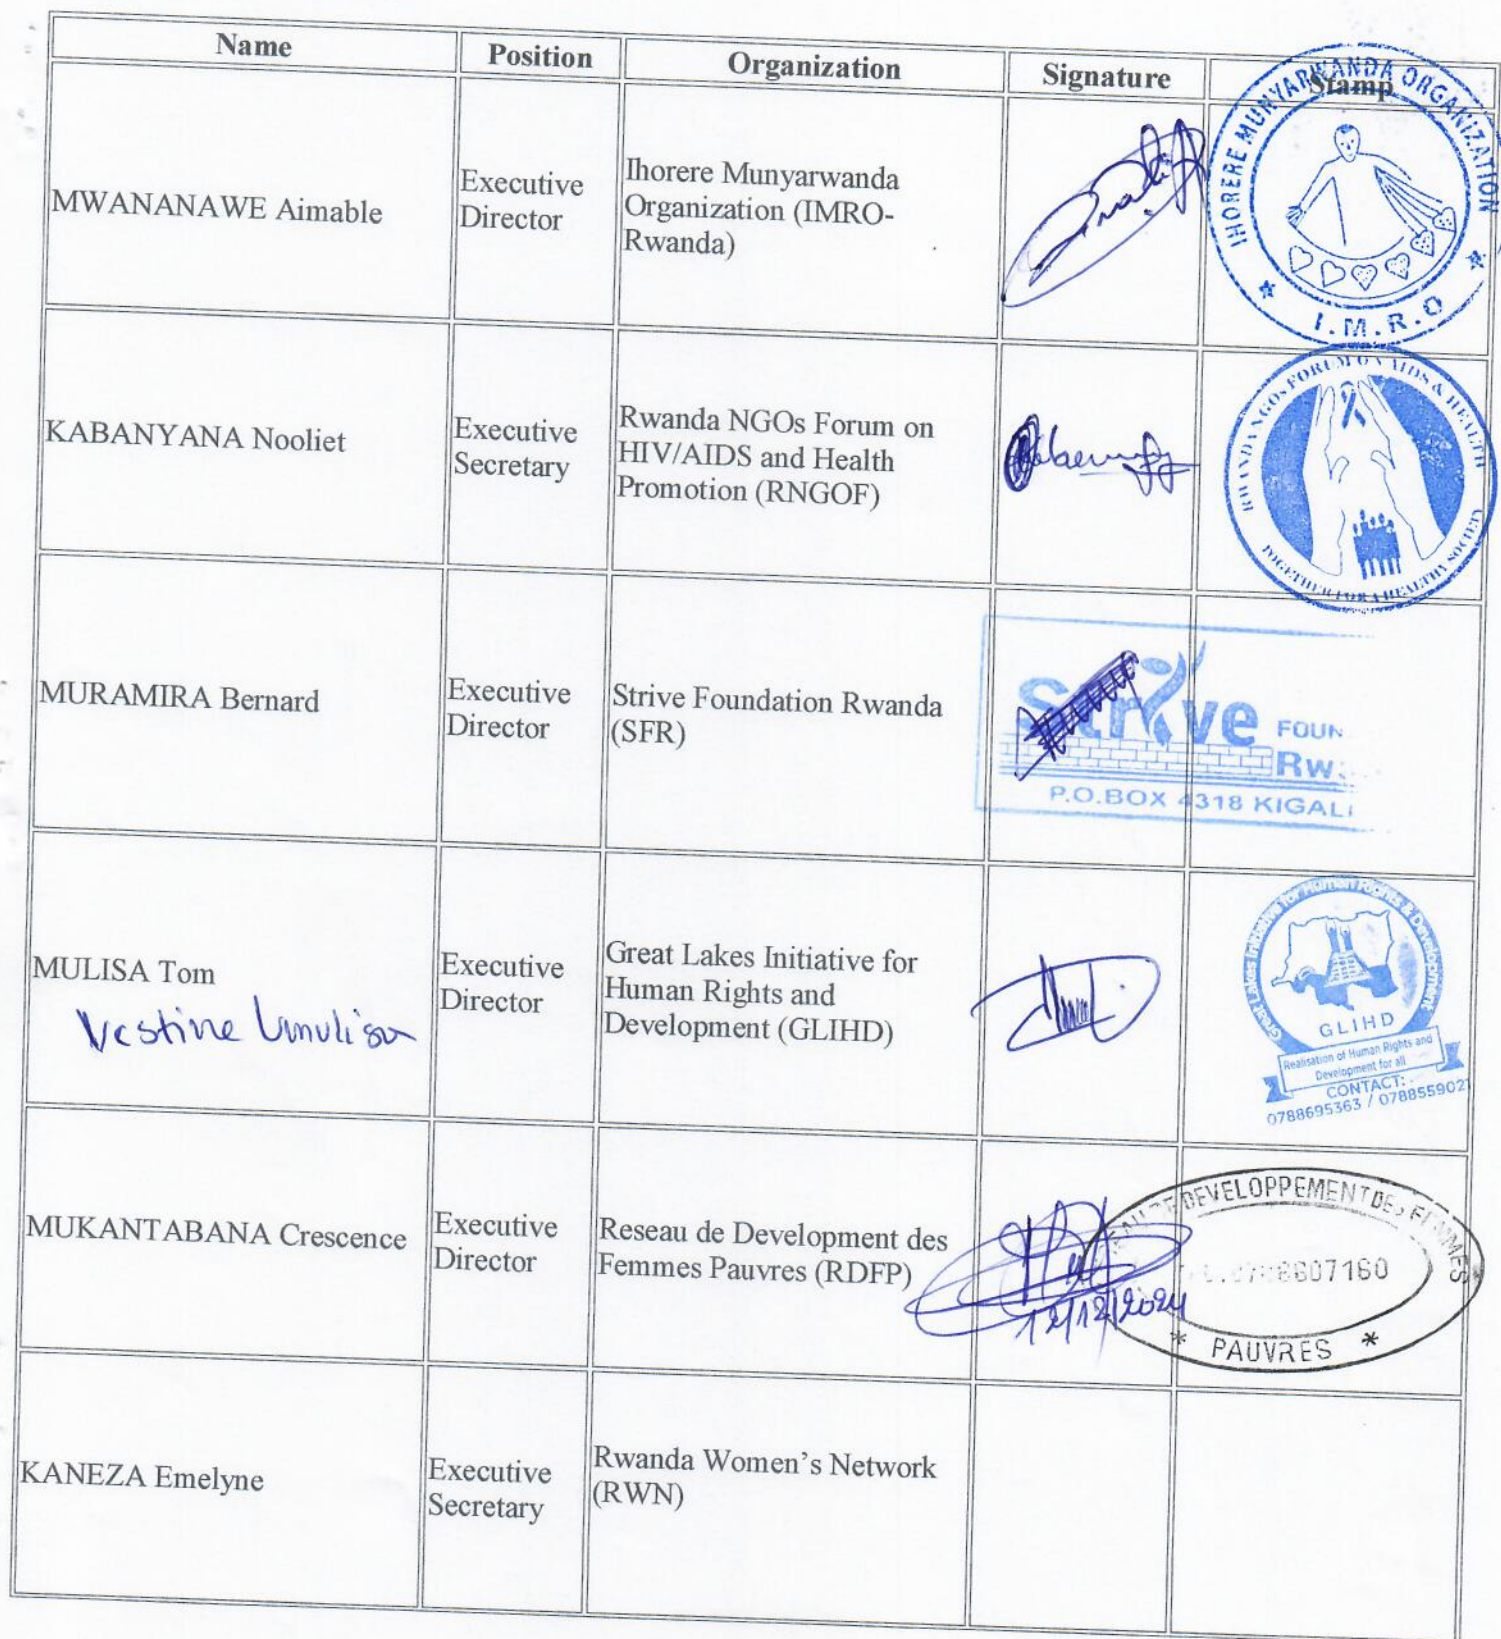 Name Position Organization Signature Stamp
MWANANAWE Aimable
Executive
Director
Ihorere Munyarwanda
Organization (IMRO-
Rwanda)
IHORERE MUNYARWANDA ORGANIZATION
I.M.R.O
KABANYANA Nooliet
Executive
Secretary
Rwanda NGOs Forum on
HIV/AIDS and Health
Promotion (RNGOF)
RWANDA NGOs FORUM ON AIDS & HEALTH
TOGETHER FOR A HEALTHY SOCIETY
MURAMIRA Bernard
Executive
Director
Strive Foundation Rwanda
(SFR)
Strive FOUN
Rw
P.O.BOX 4318 KIGALI
MULISA Tom
Vestine Umulisa
Executive
Director
Great Lakes Initiative for
Human Rights and
Development (GLIHD)
Great Lakes Initiative for Human Rights & Development
GLIHD
Realisation of Human Rights and
Development for all
CONTACT:
0788695363 / 078855902
MUKANTABANA Crescence
Executive
Director
Reseau de Development des
Femmes Pauvres (RDFP)
12/12/2024
DEVELOPPEMENT DES FEMMES
PAUVRES
KANEZA Emelyne
Executive
Secretary
Rwanda Women's Network
(RWN)